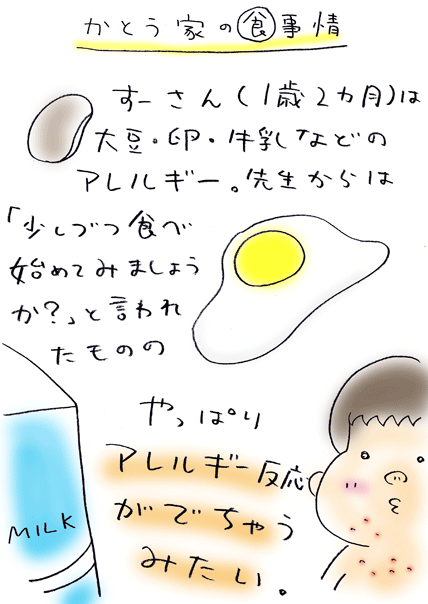 かとう家の食事情
すーさん(1歳2カ月)は
大豆・卵・牛乳などの
アレルギー。先生からは
「少しづつ食べ
始めてみましょう
か?」と言われ
たものの
やっぱり
アレルギー反応
がでちゃう
みたい。
MILK